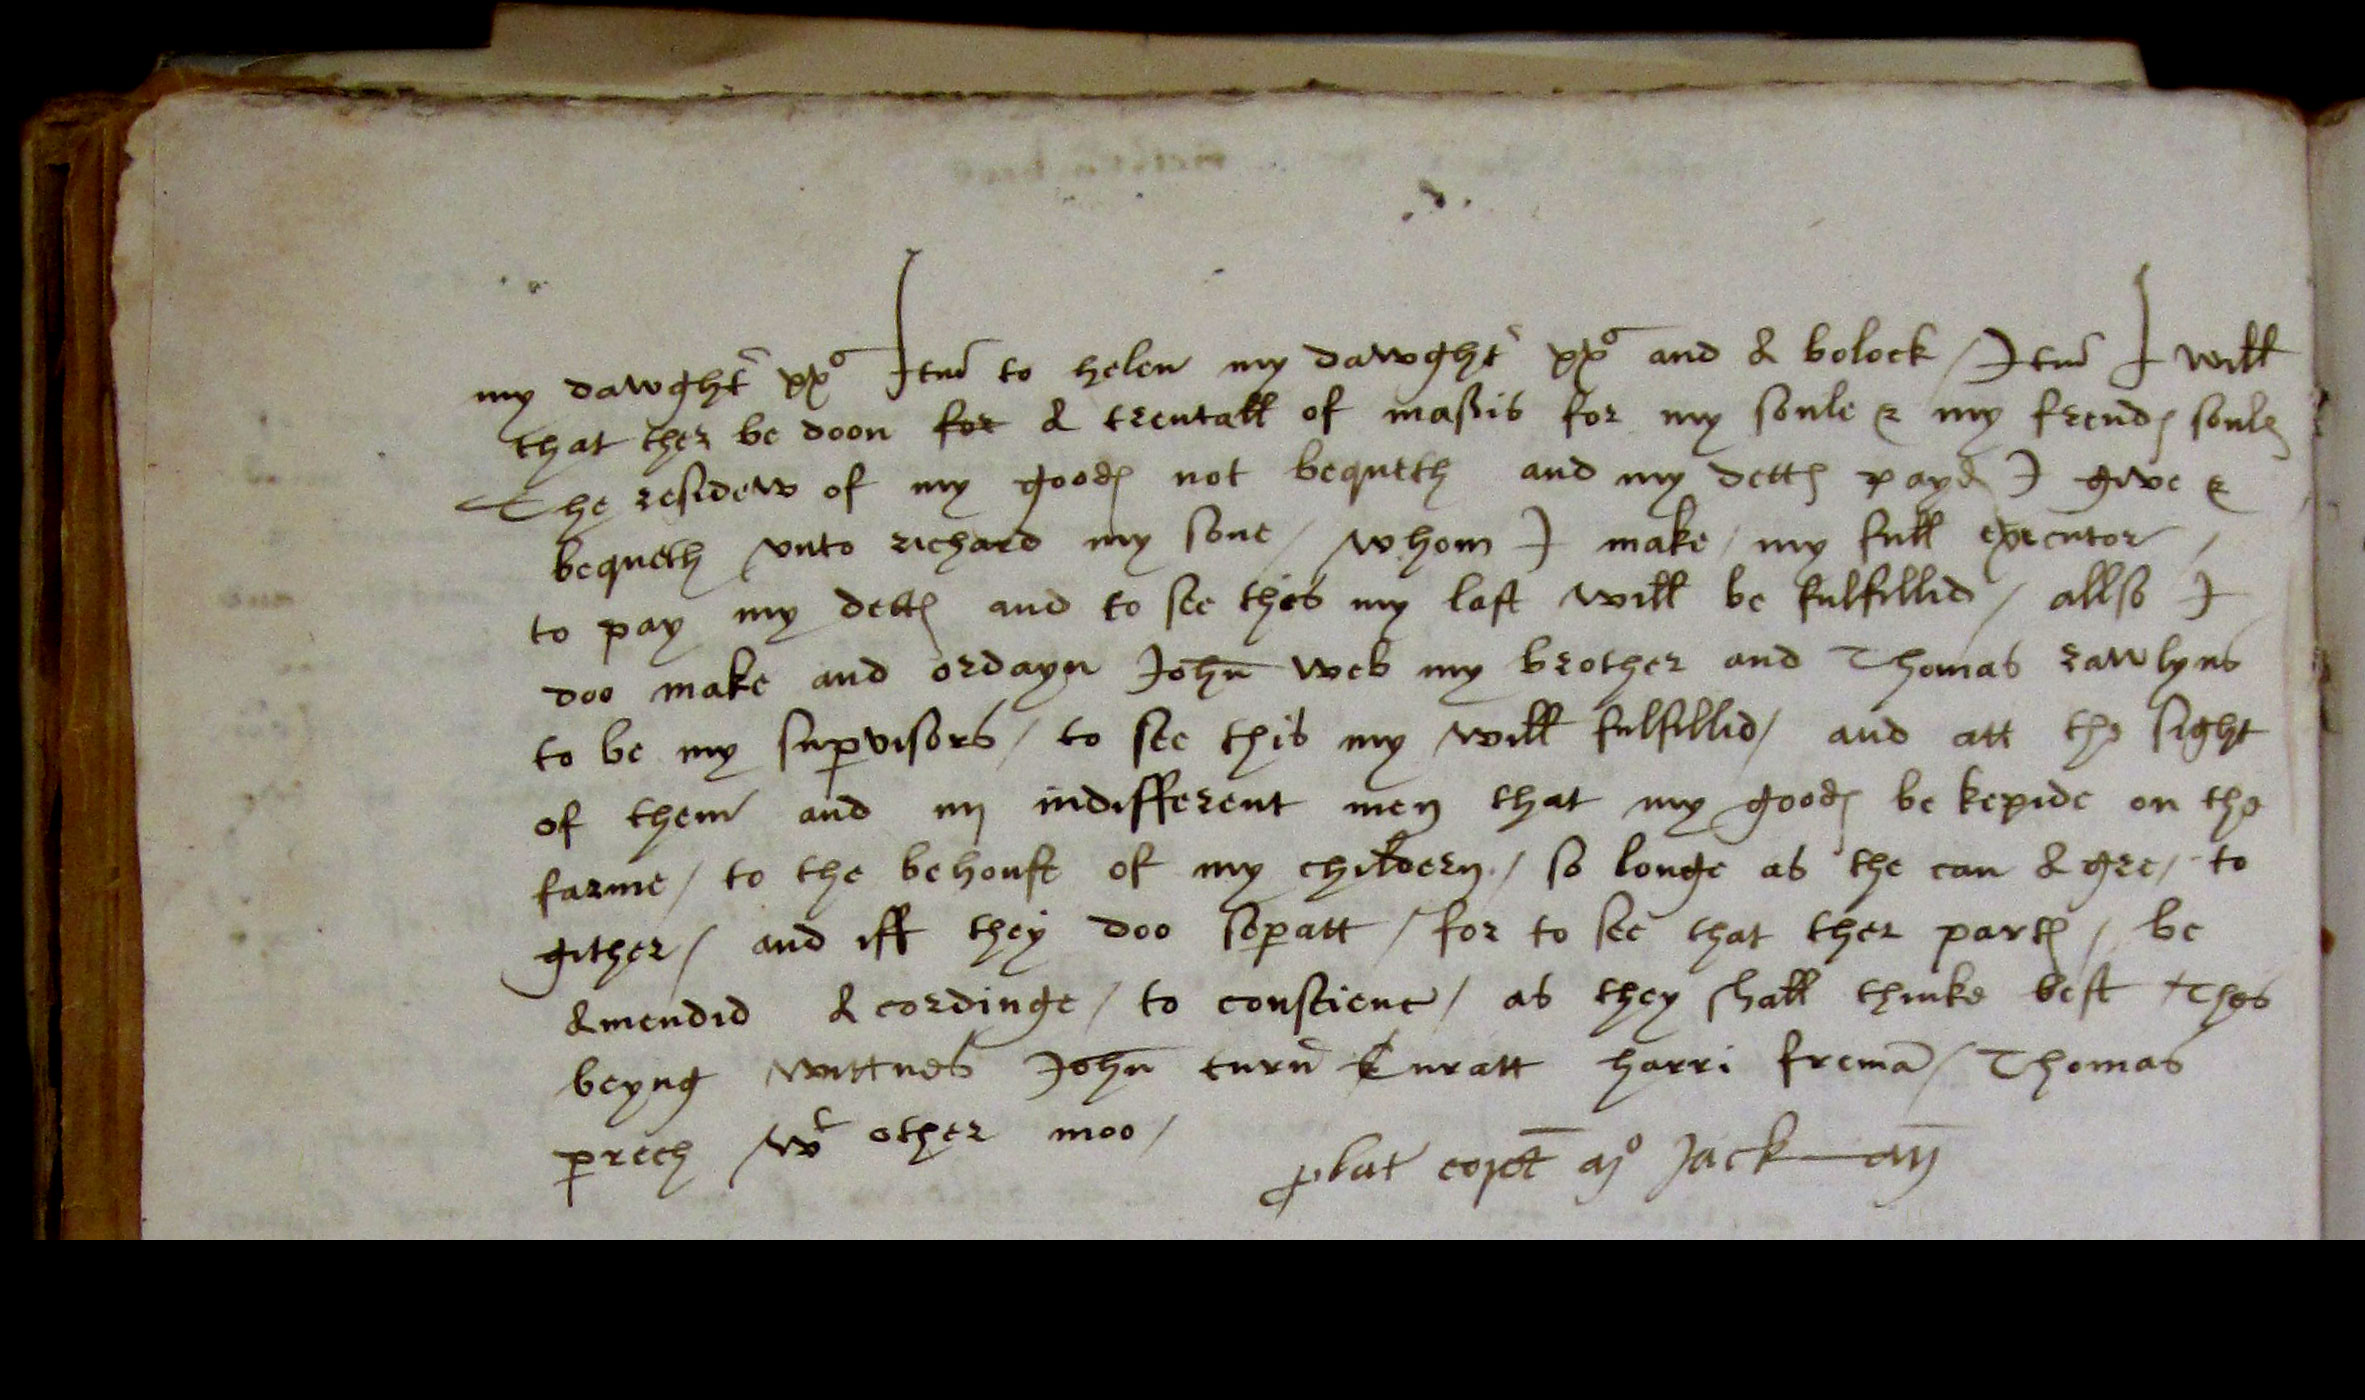 my dawght' xxs Itm to helen my dawght' xxs and a bolock / Itm I will
that ther be doon for a trentall of massis for my soule & my frendes soules
The residew of my goodes not bequeth and my dettes payd I give &
bequeth vnto richard my sone / whom I make / my full executor /
to pay my dettes and to see thes my last will be fulfillid / allso I
doo make and ordayn John web my brother and Thomas rawlyns
to be my supvisors / to see this my will fulfillid / and att the sight
of them and iij indifferent men that my goodes be kepide on the
farme / to the behoufe of my childern / so longe as the can agre / to
gither / and iff they doo sepatt / for to see that ther partes / be
amendid acordinge / to conscienc / as they shall thinke best Thes
beyng wittnes John turn Curatt harri fremā / Thomas
prech wt other moo /
Jackman